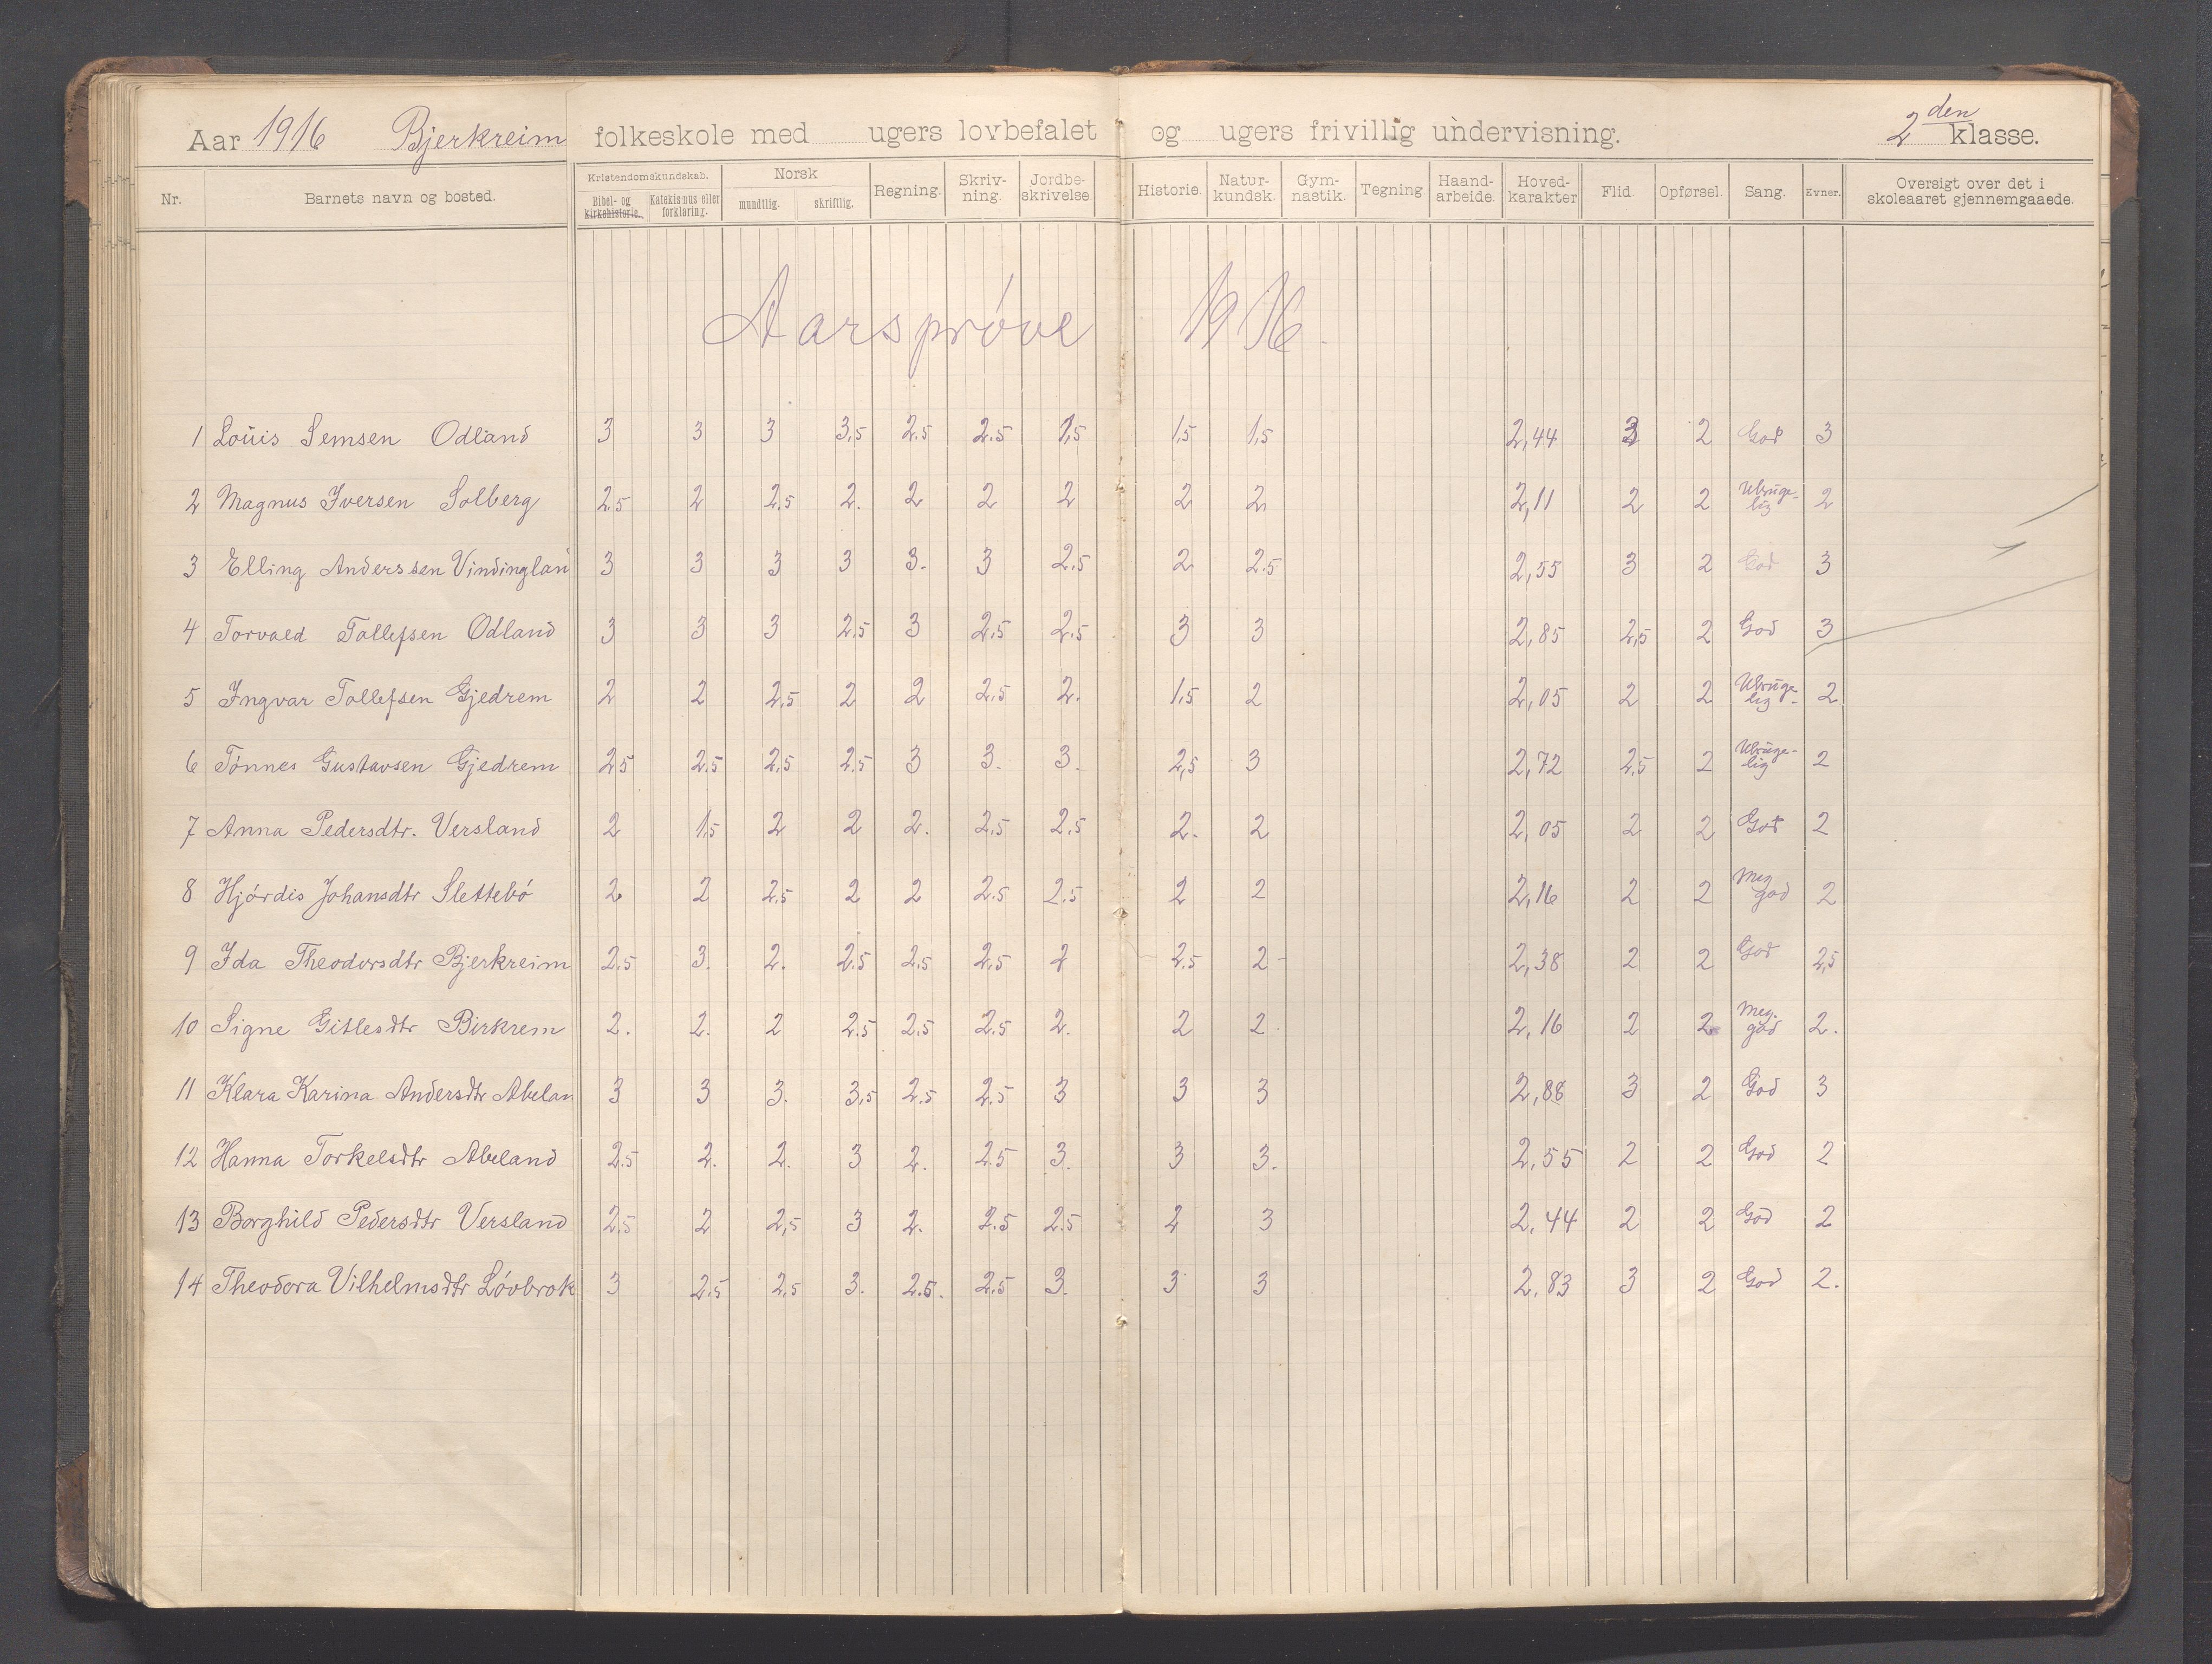 Aar 1916 Bjerkreim folkeskole med ugers lovbefalet og ugers frivillig undervisning. 2den klasse.
Nr. Barnets navn og bosted. Kristendomskundskab. Bibel- og kirkehistorie. Katekismus eller forklaring. Norsk mundtlig. skriftlig. Regning. Skriv-ning. Jordbe-skrivelse. Historie. Natur-kundsk. Gym-nastik. Tegning. Haand-arbeide. Hoved-karakter Flid. Opførsel. Sang. Evner. Oversigt over det i skoleaaret gjennemgaaede.
Aarsprøve 1916.
1 Louis Semsen Odland 3 3 3 3,5 2.5 2.5 1,5 1,5 1,5 2,44 3 2 God 3
2 Magnus Iversen Solberg 2.5 2 2,5 2. 2 2 2 2 2 2,11 2 2 Ubruge-lig 2
3 Elling Anderssen Vindingland 3 3 3 3 3. 3 2.5 2 2.5 2,55 3 2 God 3
4 Torvald Tollefsen Odland 3 3 3 2.5 3 2,5 2,5 3 3 2,85 2,5 2 God 3
5 Ingvar Tollefsen Gjedrem 2 2 2,5 2 2 2,5 2. 1,5 2 2,05 2 2 Ubruge-lig 2
6 Tønnes Gustavsen Gjedrem 2.5 2.5 2,5 2.5 3 3. 3. 2,5 3 2,72 2.5 2 Ubruge-lig 2
7 Anna Pedersdtr. Versland 2 1,5 2 2 2. 2,5 2,5 2. 2 2,05 2 2 God 2
8 Hjørdis Johansdtr Slettebø 2 2 2.5 2 2 2.5 2.5 2 2 2,16 2 2 Meg god 2
9 Ida Theodorsdtr Bjerkreim 2,5 3. 2. 2.5 2,5 2,5 2 2.5 2 2,38 2 2 God 2,5
10 Signe Gitlesdtr Birkrem 2. 2. 2 2.5 2.5 2.5 2. 2 2 2,16 2 2 Meg. god 2.
11 Klara Karina Andersdtr Abelan 3 3 3. 3,5 2.5 2.5 3 3 3 2,88 3 2 God 3
12 Hanna Torkelsdtr Abeland 2.5 2. 2. 3 2. 2.5 3. 3 3. 2,55 2 2 God 2
13 Borghild Pedersdtr Versland 2,5 2 2,5 3 2. 2.5 2.5 2 3 2.44 2 2 God 2
14 Theodora Vilhelmsdtr Løvbrok 3 2.5 2,5 3. 2.5. 2.5 3. 3 3 2.83 3 2 God 2.